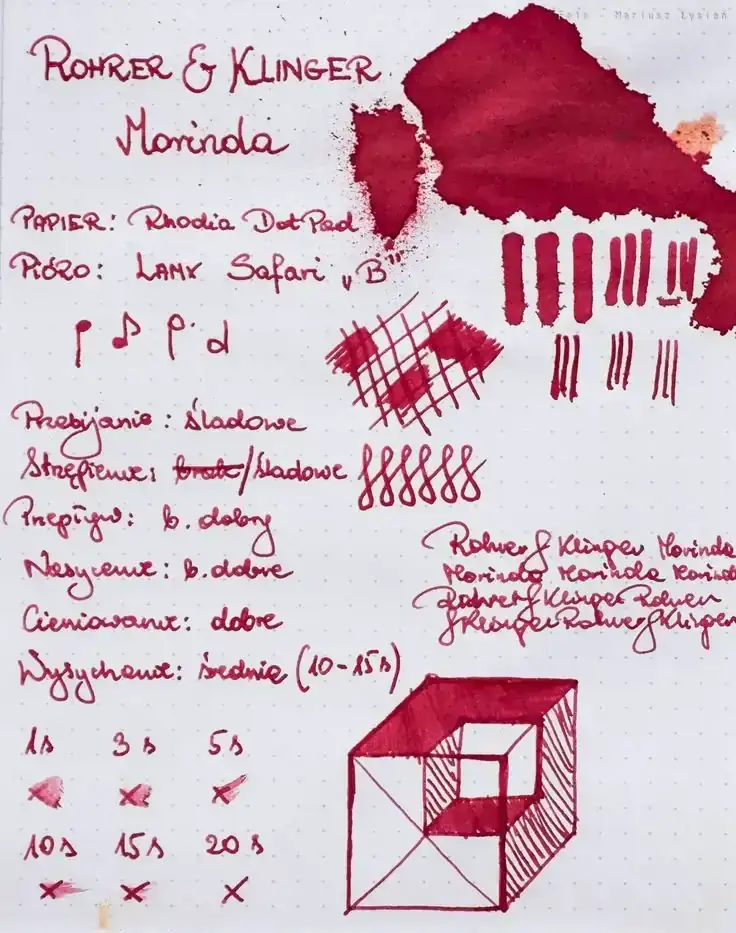 Foto - Mariusz Łysień
ROHRER & KLINGER
Morinda
PAPIER: Rhodia Dot Pad
PIÓRO: LAMY Safari „B”
Przebijanie: śladowe
Strzępienie: brak/śladowe
Przepływ: b. dobry
Nasycenie: b. dobre
Cieniowanie: dobre
Wysychanie: średnie (10-15s)
Rohrer & Klinger Morinda
Morinda Morinda Morinda
Rohrer & Klinger Rohrer
& Klinger Rohrer & Klinger
1s 3s 5s
10s 15s 20s